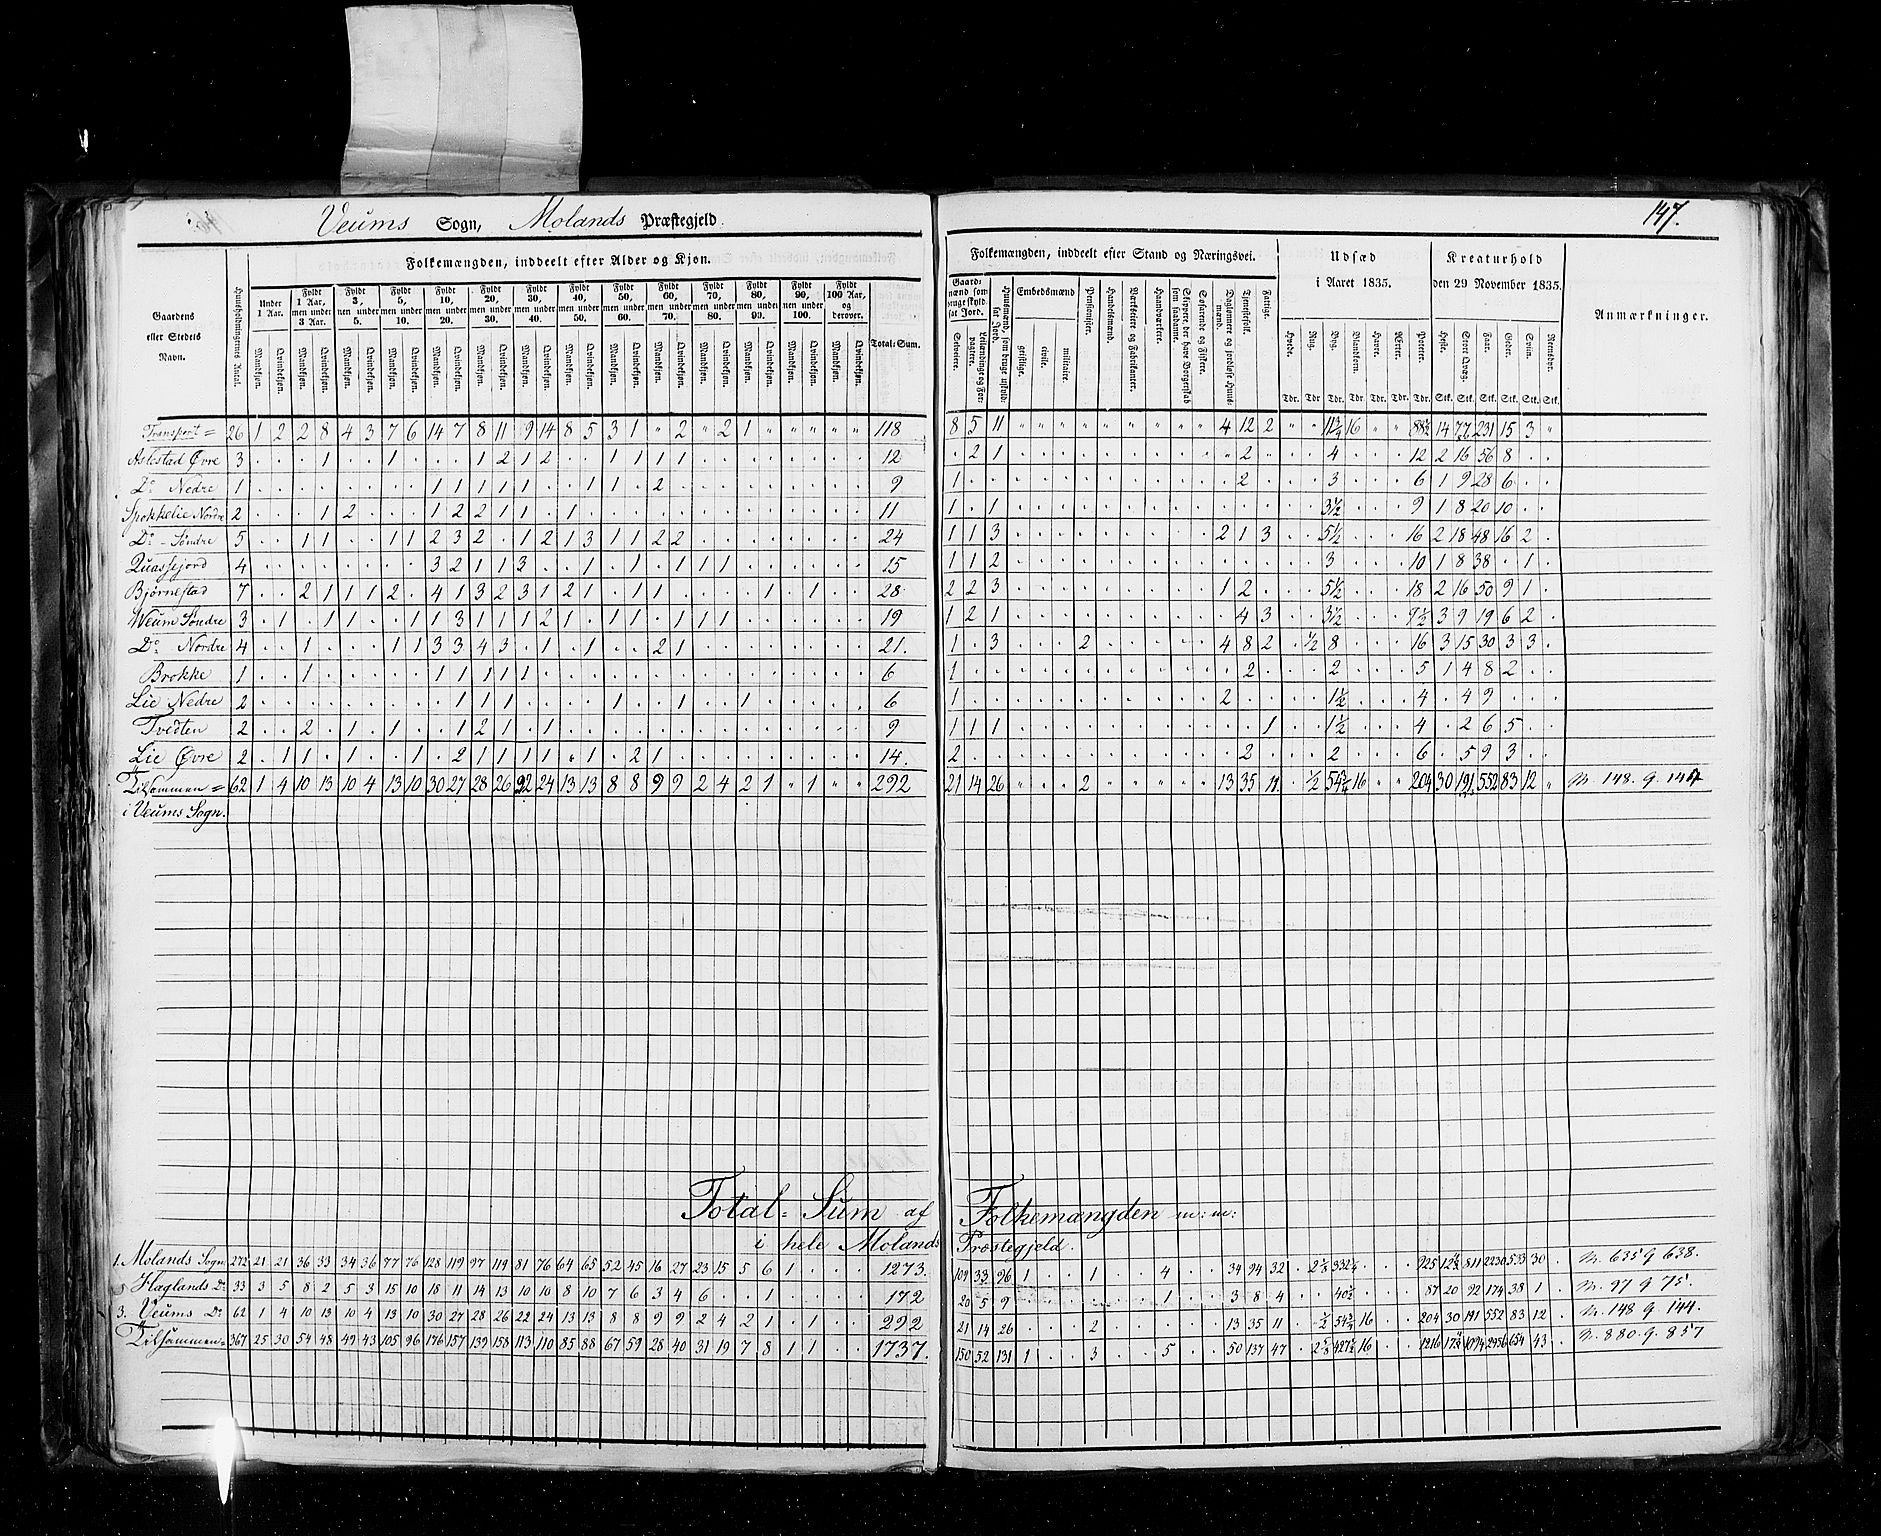 147.
Veums Sogn, Molands Præstegjeld.
Gaardens eller Stedets Navn.
Huusholdningernes Antal.
Folkemængden, inddeelt efter Alder og Kjøn.
Under 1 Aar.
Fyldt 1 Aar, men under 3 Aar.
Fyldt 3, men under 5.
Fyldt 5, men under 10.
Fyldt 10, men under 20.
Fyldt 20, men under 30.
Fyldt 30, men under 40.
Fyldt 40, men under 50.
Fyldt 50, men under 60.
Fyldt 60, men under 70.
Fyldt 70, men under 80.
Fyldt 80, men under 90.
Fyldt 90, men under 100.
Fyldt 100 Aar, og derover.
Mandkjøn. Qvindekjøn.
Total-Sum.
Folkemængden, inddeelt efter Stand og Næringsvei.
Selveiere.
Embedsmænd
geistlige. civile. militaire.
Pensionister.
Handelsmænd.
Værkseiere og Fabrikanter.
Haandværkere.
Skippere, der have Borgerskab som saadanne.
Søfarende og Fiskere.
Tjenestefolk.
Fattige.
Udsæd i Aaret 1835.
Hvede. Rug. Byg. Blandkorn. Havre. Erter. Poteter.
Tdr. Tdr. Tdr. Tdr. Tdr. Tdr. Tdr.
Kreaturhold den 29 November 1835.
Heste. Stort Qvæg. Faar. Geder. Sviin. Reensdyr.
Stk. Stk. Stk. Stk. Stk. Stk.
Anmærkninger.
Transport = 26 1 2 2 8 4 3 7 6 14 7 8 11 9 14 8 5 3 1 " 2 " 2 1 " " " " " 118 8 5 11 4 12 2 16 14 77 231 15 3 "
Øvre 3 . . . 1 . . 1 . . . 1 2 1 2 . . 1 1 1 1 12 . 2 1 2 4 12 2 16 56 8
Do Nedre 1 1 1 1 1 1 . . 1 1 . 2 9 1 2 3 6 1 9 28 6
Spokkelie Nordre 2 . . . 1 2 . . . 1 2 2 1 1 . 1 11 1 . 1 3½ 9 1 8 20 10
Do - Søndre 5 . . 1 1 . . 1 1 2 3 2 . 1 2 1 3 1 1 2 2 24 1 1 3 2 1 3 5½ 16 2 18 48 16 2
Quassjord 4 3 2 1 1 3 . . 1 . 1 . 1 1 1 15 1 1 2 3 10 1 8 38 . 1
Bjørnestad 7 . . 2 1 1 1 2 . 4 1 3 2 3 1 2 1 . 1 1 . . . . 1 . 1 28 2 2 3 1 2 5½ 18 2 16 50 9 1
Weum Søndre 3 . 1 . 1 1 . . 1 1 3 1 1 1 2 1 . 1 1 . 1 1 1 19 1 2 1 4 3 3½ 9½ 3 9 19 6 2
Do Nordre 4 . . 1 . . . 1 1 3 3 4 3 . 1 . 1 . . 2 1 21. 1 . 3 2 4 8 2 ½ 8 16 3 15 30 3 3
Brokke 1 . . 1 . . . . . 1 1 1 1 1 6 1 2 2 5 1 4 8 2
Lie Nedre 2 1 1 1 . . . . 1 . . 1 . . 1 6 1 2 1½ 4 . 4 9
Tvedten 2 . . 2 . 1 . 1 . . 1 2 1 . 1 9 1 1 1 1 1½ 4 . 2 6 5
Lie Øvre 2 . 1 1 . 1 . . 1 . 2 1 1 1 1 . 1 . 2 1 14. 2 2 2 6 . 5 9 3
Tilsammen = 62 1 4 10 13 10 4 13 10 30 27 28 26 22 24 13 13 8 8 9 9 2 4 2 1 " 1 " " 292 21 14 26 2 13 35 11 ½ 54¾ 16 204 30 191 552 83 12 " M. 148. Q. 144
i Veums Sogn.
Total-Sum af Folkemængden m: m:
i hele Molands Præstegjeld.
1. Molands Sogn 272 21 21 36 33 34 36 77 76 128 119 97 119 81 76 64 65 52 45 16 27 23 15 5 6 1 1273. 109 33 96 1 1 4 34 94 32 925 811 2230 533 30 M. 635 Q 638.
Haglands Do 33 3 5 8 2 5 3 15 10 18 11 14 13 10 10 8 10 7 6 3 4 6 . . 1 172 20 5 9 1 3 8 4 87 20 92 174 38 1 M. 97 Q 75.
3. Veums Do 62 1 4 10 13 10 4 13 10 30 27 28 26 22 24 13 13 8 8 9 9 2 4 2 1 . 1 292 21 14 26 2 13 35 11 ½ 54¾ 16 204 30 191 552 83 12 M. 148 Q. 144.
Tilsammen = 367 25 30 54 48 49 43 105 96 176 157 139 158 113 110 85 88 67 59 28 40 31 19 7 8 1 1 1737. 150 52 131 1 3 5 50 137 47 16 1216 1094 2956 654 43 M. 880. Q. 857